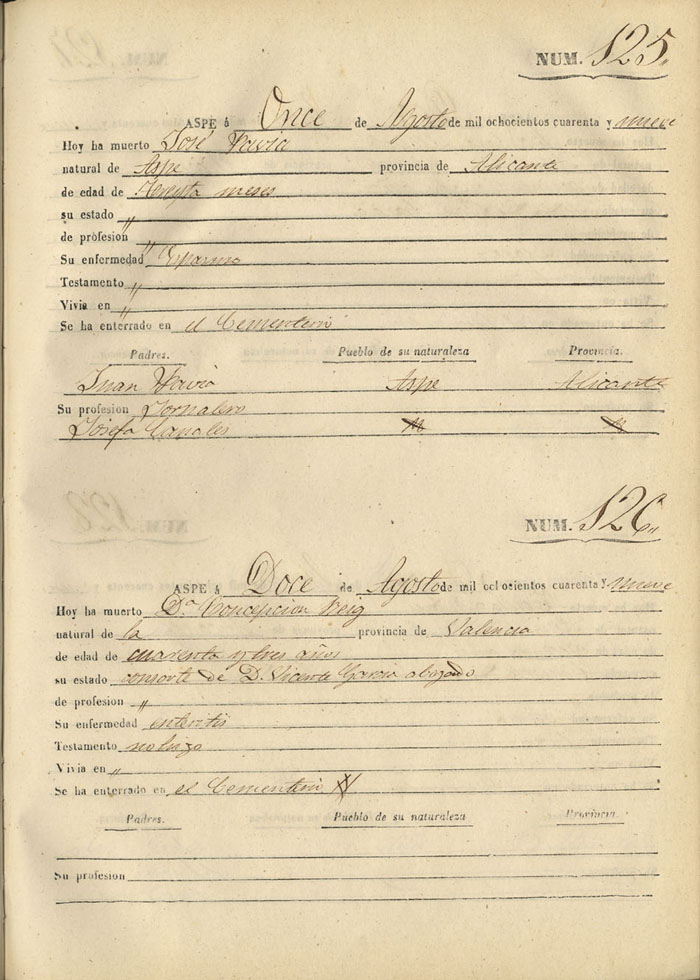 NUM. 125.
ASPE á Once de Agosto de mil ochocientos cuarenta y nueve
Hoy ha muerto José Pavia
natural de Aspe provincia de Alicante
de edad de treynta meses
su estado "
de profesion "
Su enfermedad Espasmo
Testamento "
Vivia en "
Se ha enterrado en el Cementerio
Padres. Pueblo de su naturaleza Provincia.
Juan Pavia Aspe Alicante
Su profesion Jornalero
Josefa Canales
NUM. 126.
ASPE á Doce de Agosto de mil ochocientos cuarenta y nueve
Hoy ha muerto Dª Concepcion Reig
natural de la provincia de Valencia
de edad de cuarenta y tres años
su estado consorte de D. Vicente Garcia abogado
de profesion "
Su enfermedad enteritis
Testamento no hizo
Vivia en "
Se ha enterrado en el Cementerio
Padres. Pueblo de su naturaleza Provincia.
Su profesion